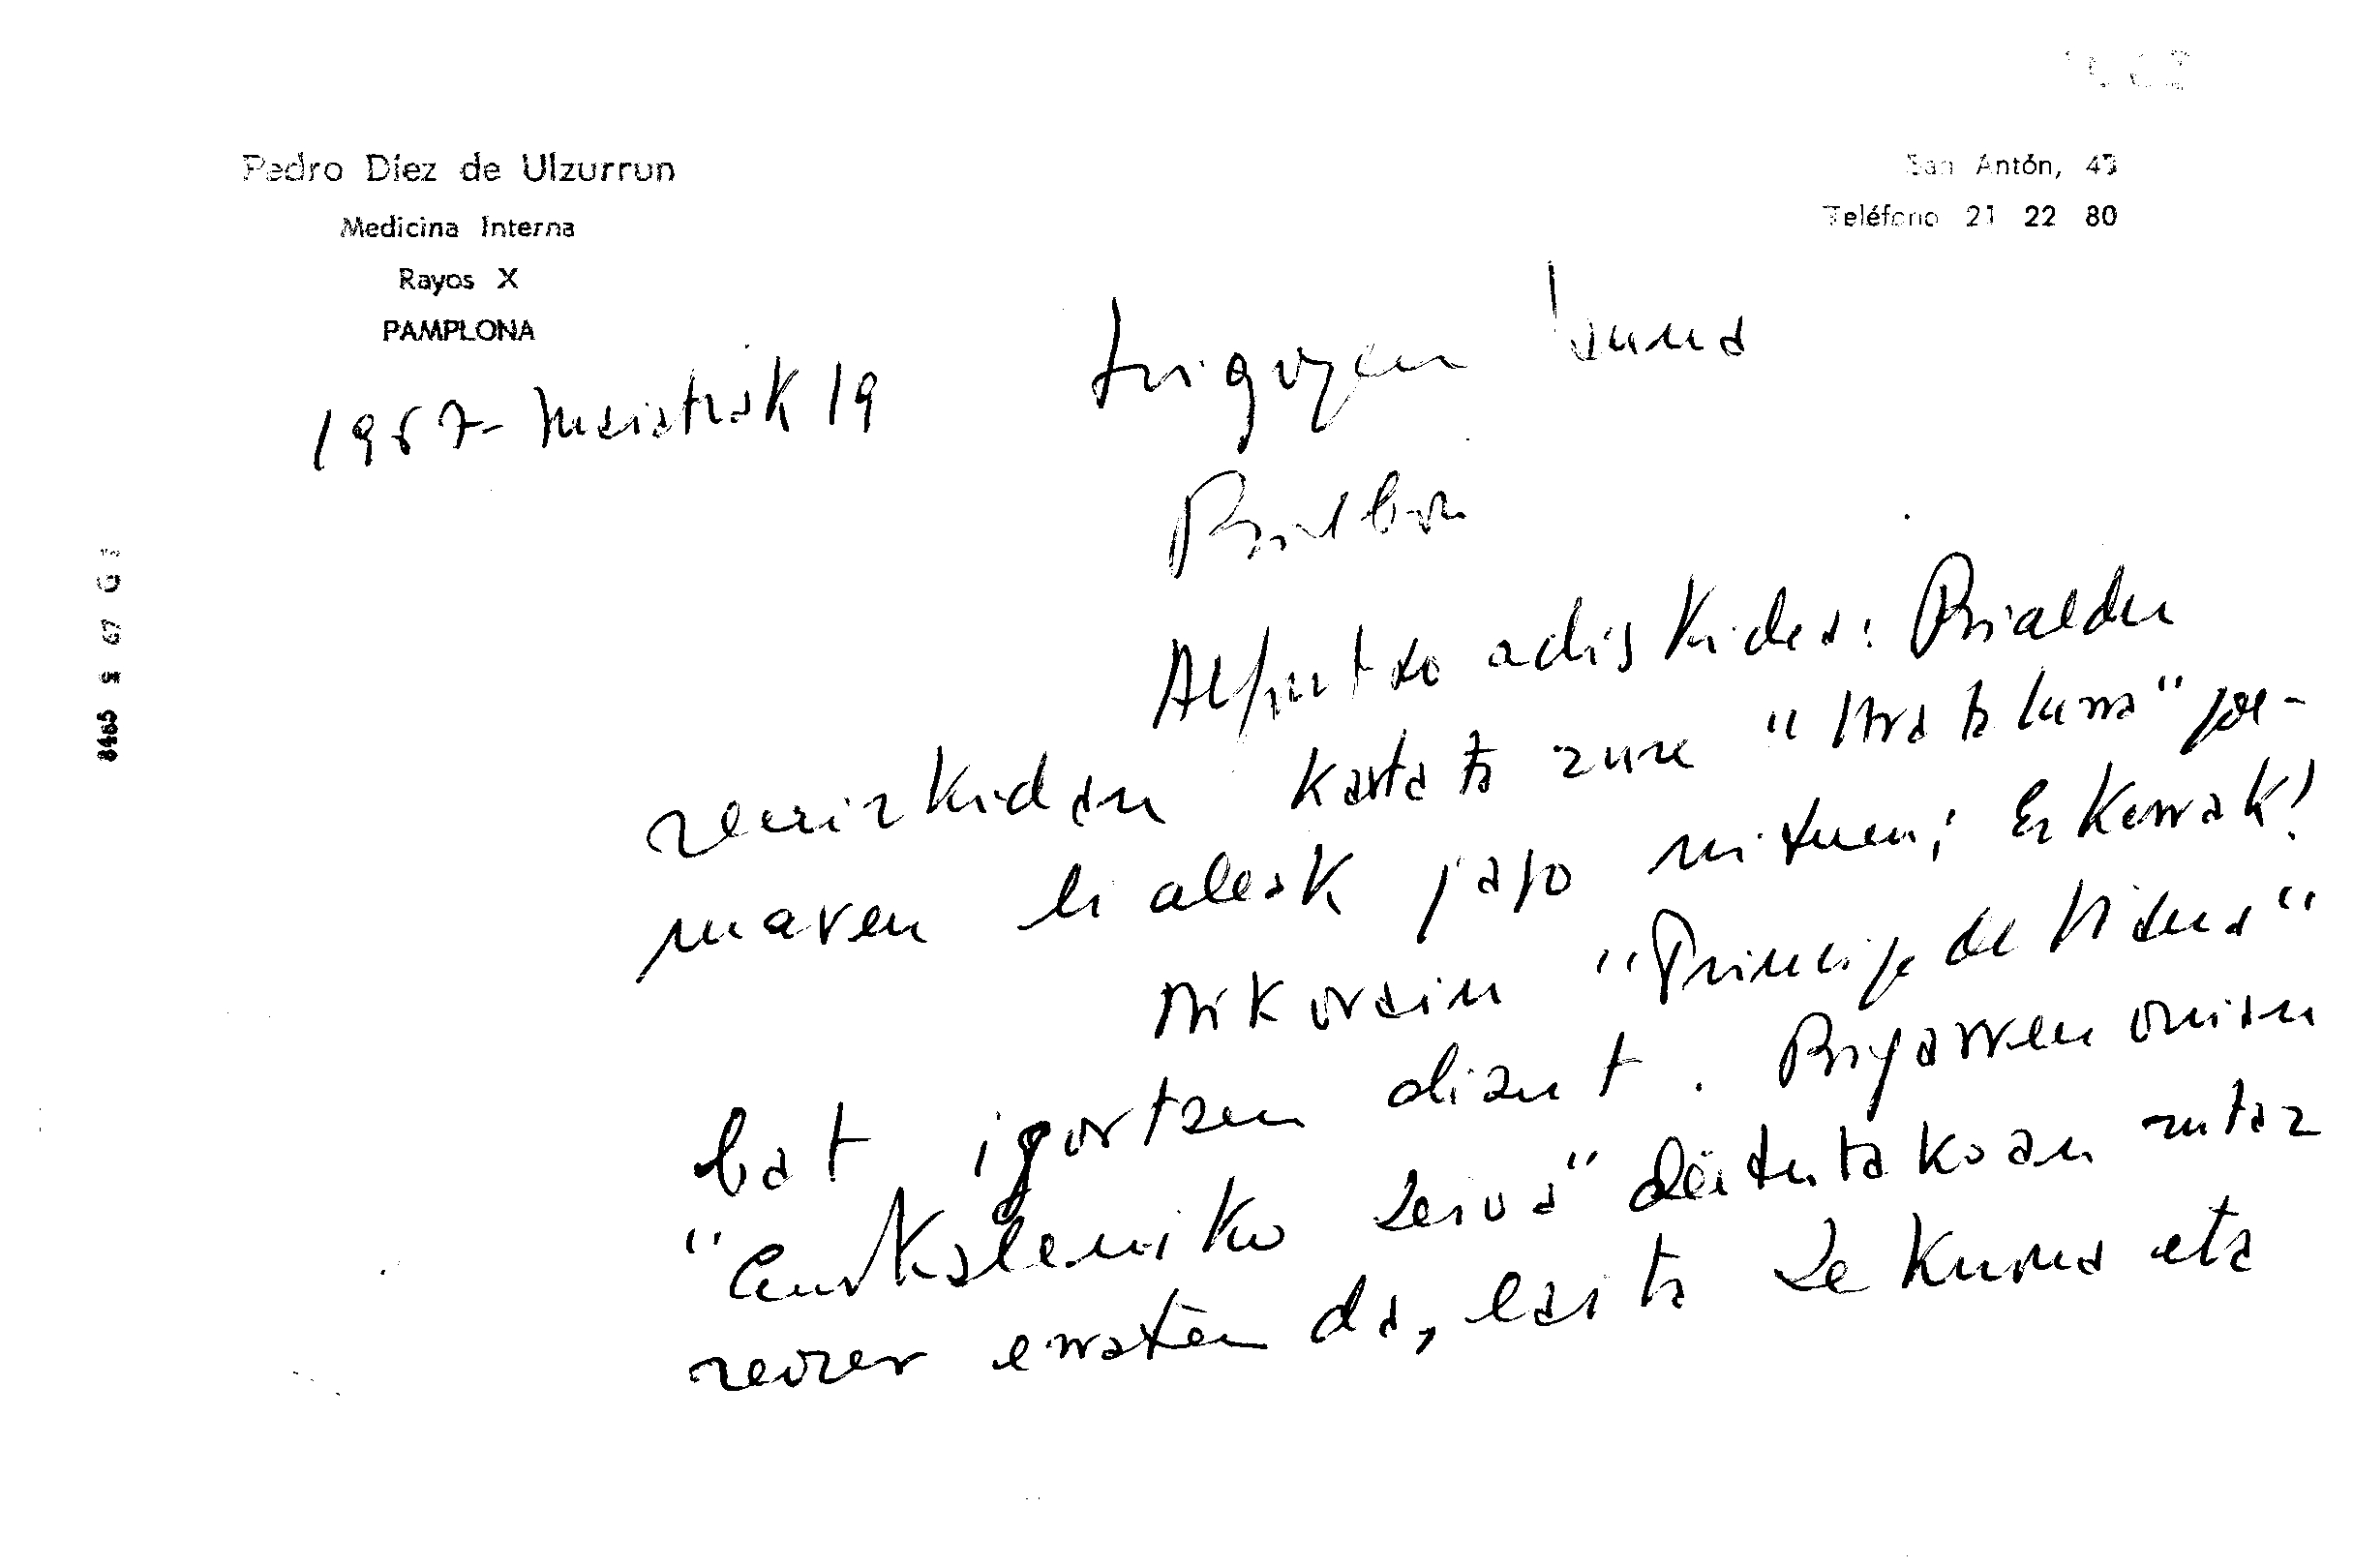 Pedro Díez de Ulzurrun
Medicina Interna
Rayos X
PAMPLONA
San Antón, 43
Teléfono 21 22 80
1967- maiatzak 19
Irigoyen Jauna
Bilbon
Alfontso adiskidea: Bialdu
zenizkidan karta ta zure " ta lurra" poe-
maren bi aleak jaso nituen; Eskerrak!
Nik orain "Principe de Viana"
bat igortzen dizut. Bigarren orrian
"Euskaleriko " deitutakoan zutaz
zeozer erraten da, baita Zekuna eta